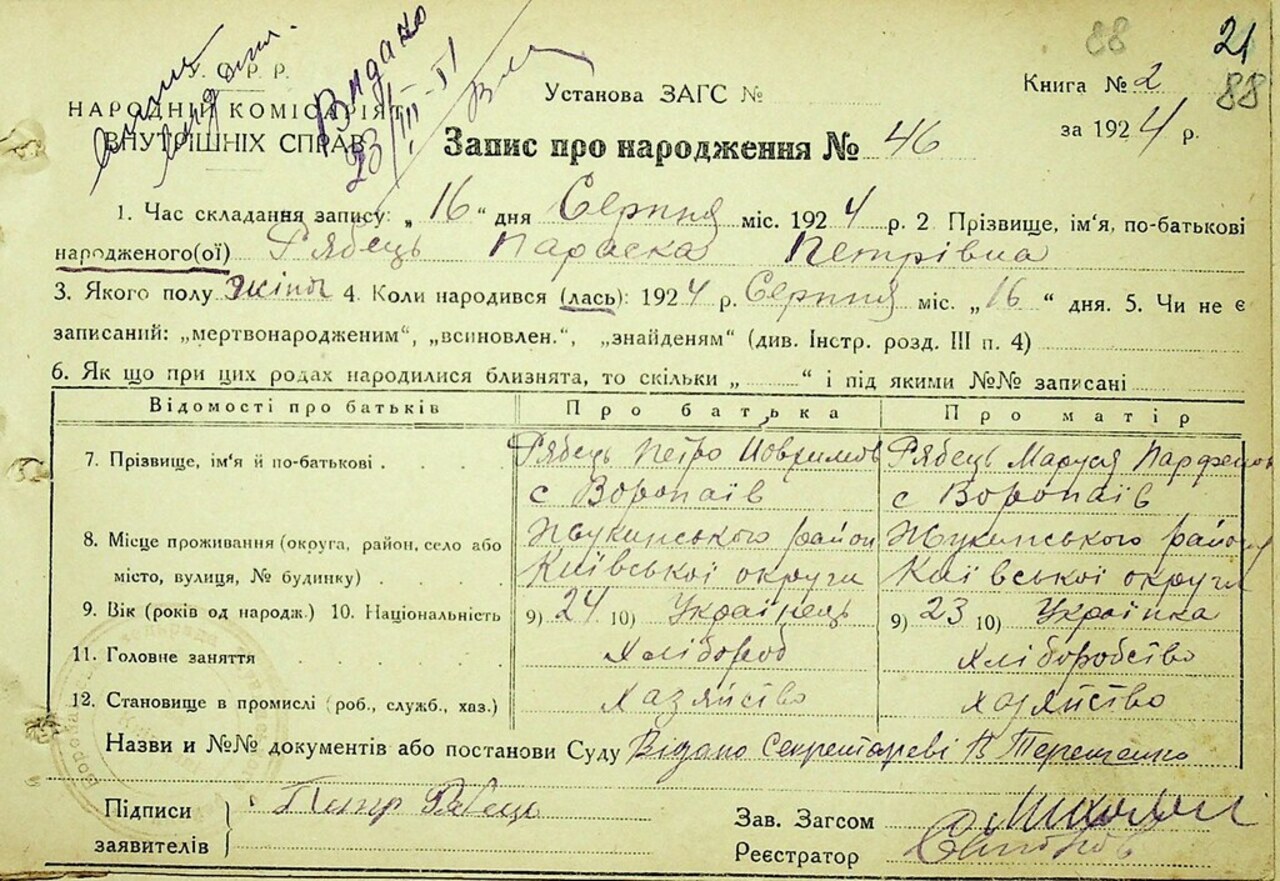 88 21
У. С. Р. Р.
НАРОДНІЙ КОМІСАРІЯТ
ВНУТРІШНІХ СПРАВ
Видано
23/III-51
Установа ЗАГС №
Книга № 2
88
за 1924 р.
Запис про народження № 46
1. Час складання запису: „ 16 “ дня Серпня міс. 1924 р. 2 Прізвище, ім‘я, по-батькові
народженого(ої) Рябець Параска Петрівна
3. Якого полу жіноч 4. Коли народився (лась): 1924 р. Серпня міс. „ 16 “ дня. 5. Чи не є
записаний: „мертвонародженим“, „всиновлен.“, „знайденям“ (див. Інстр. розд. III п. 4)
6. Як що при цих родах народилися близнята, то скільки „ “ і під якими №№ записані
Відомості про батьків Про батька Про матір
7. Прізвище, ім‘я й по-батькові Рябець Петро Рябець Маруся
с Воропаїв с Воропаїв
8. Місце проживання (округа, район, село або Жукинського район Жукинського району
місто, вулиця, № будинку) Київської округи Київської округи
9. Вік (років од народж.) 10. Національність 9) 24 10) Українець 9) 23 10) Українка
11. Головне заняття Хлібороб Хліборобство
12. Становище в промислі (роб., служб., хаз.) Хазяйство Хазяйство
Назви и №№ документів або постанови Суду Відано Секретареві В Терещенко
Підписи
заявителів Петр Рябець
Зав. Загсом
Реєстратор